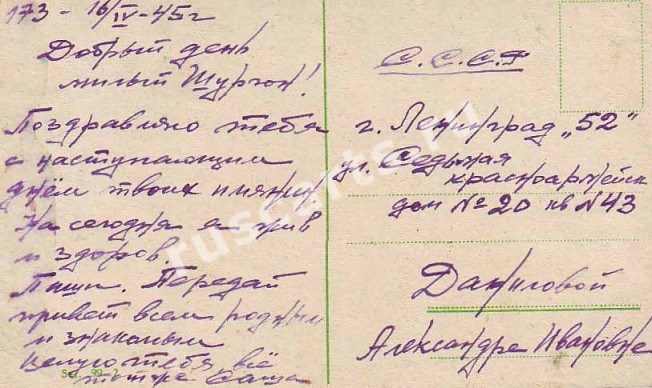 173 - 16/IV-45г
Добрый день
милый Шурчон!
Поздравляю тебя
с наступающим
днём твоих имянин
На сегодня я жив
и здоров.
Пиши. Передай
привет всем родным
и знакомым
Целую тебя, всё
Саша
С.С.С.Р
г. Ленинград „52"
ул. Седьмая
красноармейск
дом №20 кв N43
Даниловой
Александре Ивановне
ruscarts.ru